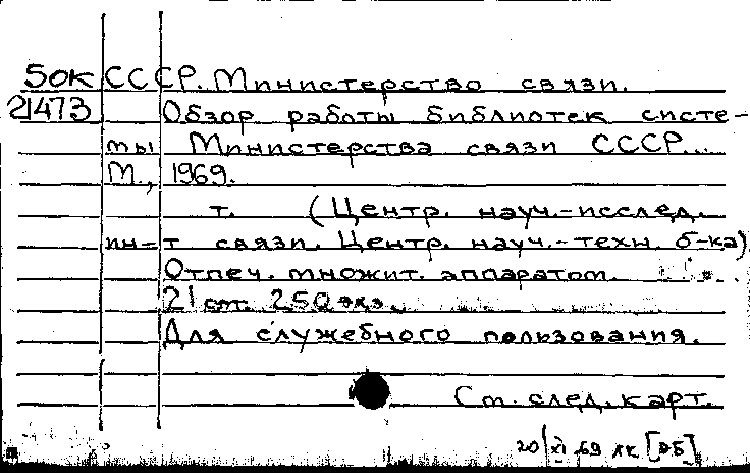 50к СССР. Министерство связи.
21473 Обзор работы библиотек систе-
мы Министерства связи СССР...
М., 1969.
т. (Центр. науч.-исслед.
ин-т связи. Центр. науч.-техн. б-ка)
Отпеч. множит. аппаратом.
21 см. 250 экз.
Для служебного пользования.
См. след. карт.
20/XI 69 ЛК